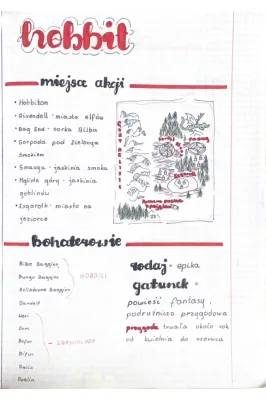 hobbit
miejsca akcji
• Hobbiton
• Rivendell - miasto elfów
• Bag End - norka Bilba
• Gospoda pod Zielonym
Smokiem
• Smauga - jaskinia smoka
• Mgliste góry - jaskinia
goblinów
• Esgaroth - miasto na
jeziorze
bohaterowie
Bilbo Baggins
Bungo Baggins
Belladonna Baggins
HOBBICI
Gandalf
Nori
Dori
Bofur
Bifur
Balin
Dwalin
rodzaj - epika
gatunek -
powieść fantasy,
podróżniczo przygodowa
przygoda trwała około rok
od kwietnia do czerwca